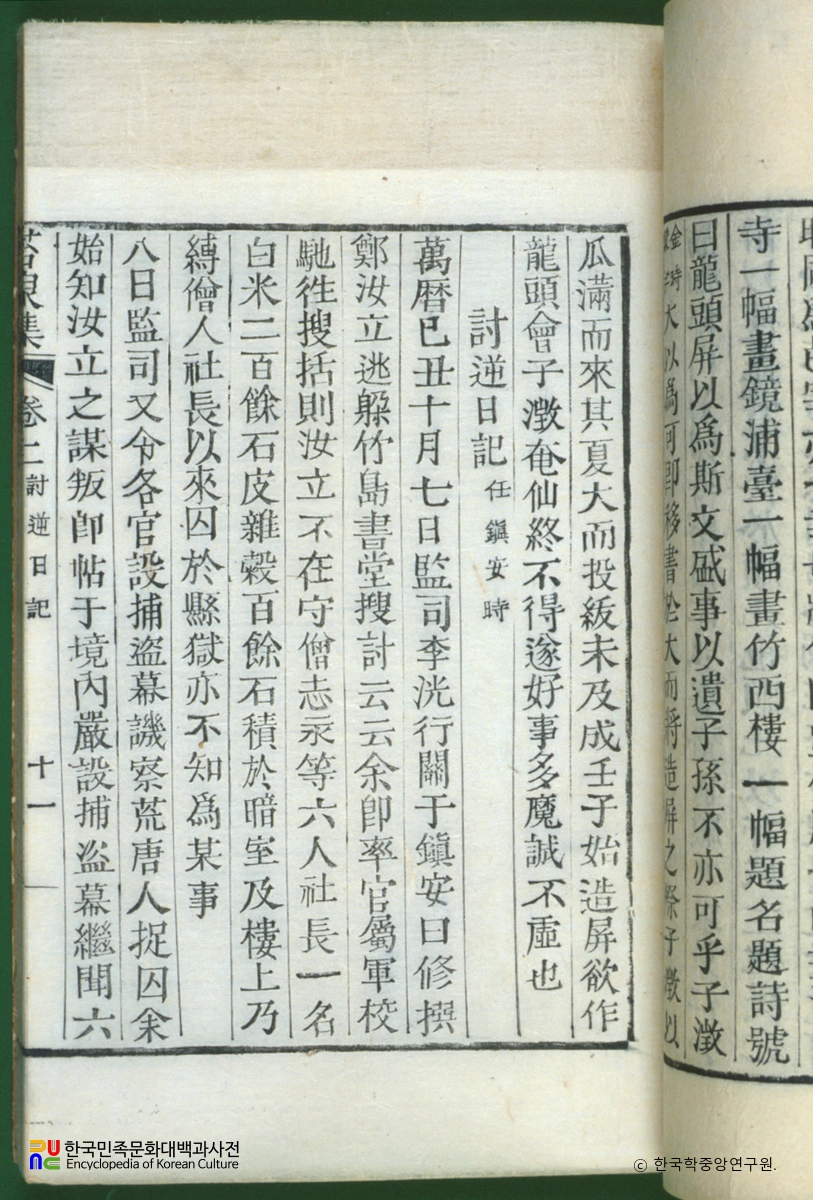 寺一幅畫鏡浦臺一幅畫竹西樓一幅題名題詩號
曰龍頭屏以爲斯文盛事以遺子孫不亦可乎子澂
瓜滿而來其夏大而投紱未及成壬子始造屏欲作
龍頭會子澂奄仙終不得遂好事多魔誠不虛也
討逆日記 任鎭安時
萬曆己丑十月七日監司李洸行關于鎭安曰修撰
鄭汝立逃躱竹島書堂搜討云云余卽率官屬軍校
馳徃搜括則汝立不在守僧志永等六人社長一名
白米二百餘石皮雜穀百餘石積於暗室及樓上乃
縛僧人社長以來囚於縣獄亦不知爲某事
八日監司又令各官設捕盜幕譏察荒唐人捉囚余
始知汝立之謀叛卽帖于境內嚴設捕盜幕繼聞六
集 卷二 討逆日記 十一
한국민족문화대백과사전
Encyclopedia of Korean Culture
ⓒ 한국학중앙연구원.